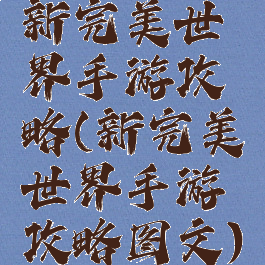 新完美世
界手游攻
略(新完美
世界手游
攻略图文)